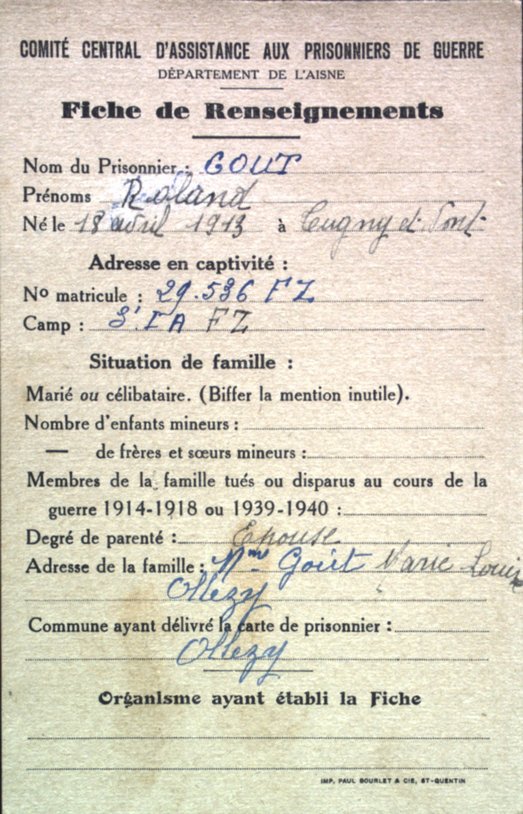 COMITÉ CENTRAL D'ASSISTANCE AUX PRISONNIERS DE GUERRE
DÉPARTEMENT DE L'AISNE
Fiche de Renseignements
Nom du Prisonnier : GOUT
Prénoms Roland
Né le 18 avril 1913 à Cugny et Pont
Adresse en captivité :
No matricule : 29.536 FZ
Camp : FZ
Situation de famille :
Marié ou célibataire. (Biffer la mention inutile).
Nombre d'enfants mineurs :
— de frères et sœurs mineurs :
Membres de la famille tués ou disparus au cours de la
guerre 1914-1918 ou 1939-1940 :
Degré de parenté : Epouse
Adresse de la famille : Mme Goût Marie Louise
Ollezy
Commune ayant délivré la carte de prisonnier :
Ollezy
Organisme ayant établi la Fiche
IMP. PAUL BOURLET & CIE, ST-QUENTIN